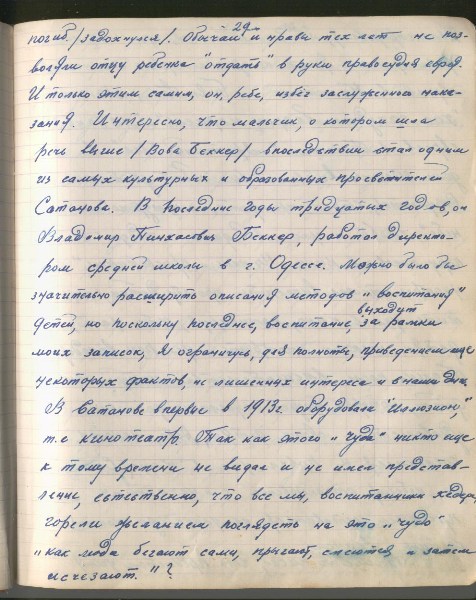 29.
погиб /задохнулся/. Обычаи и нравы тех лет не поз-
воляли отцу ребенка "отдать" в руки правосудия еврея.
И только этим самим, он, ребе, избег заслуженного нака-
зания. Интересно, что мальчик, о котором шла
речь выше /Вова Беккер/ впоследствии стал одним
из самых культурных и образованных просветителей
Сатанова. В последние годы тридцатых годов, он
Владимир Пинхасович Беккер, работал директо-
ром средней школы в г. Одессе. Можно было бы
значительно расширить описания методов "воспитания"
выходит
детей, но поскольку последнее, воспитание, за рамки
моих записок, я ограничусь, для полноты, приведением еще
некоторых фактов, не лишенных интереса и в наши дни.
В Сатанове впервые в 1913г. оборудовали "Иллюзион",
т.е кинотеатр. Так как этого "чуда" никто еще
к тому времени не видал и не имел представ-
ление, естественно, что все мы, воспитанники хедера,
горели желанием поглядеть на это "чудо"
"как люди бегают сами, прыгают, смеются, а затем
исчезают."?